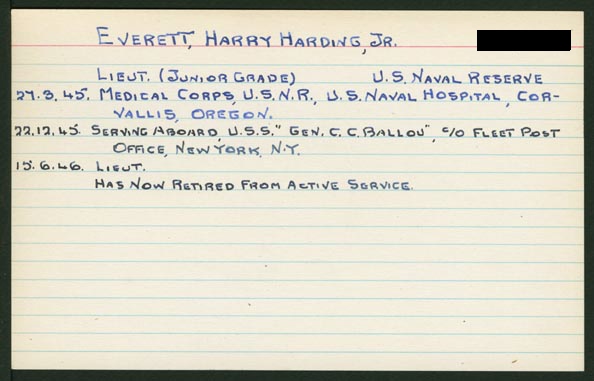 EVERETT, HARRY HARDING, JR.
LIEUT. (JUNIOR GRADE) U.S. NAVAL RESERVE
27.3.45. MEDICAL CORPS, U.S.N.R., U.S. NAVAL HOSPITAL, COR-
VALLIS, OREGON.
22.12.45. SERVING ABOARD, U.S.S. "GEN. C. C. BALLOU", c/o FLEET POST
OFFICE, NEW YORK, N.Y.
15.6.46. LIEUT.
HAS NOW RETIRED FROM ACTIVE SERVICE.